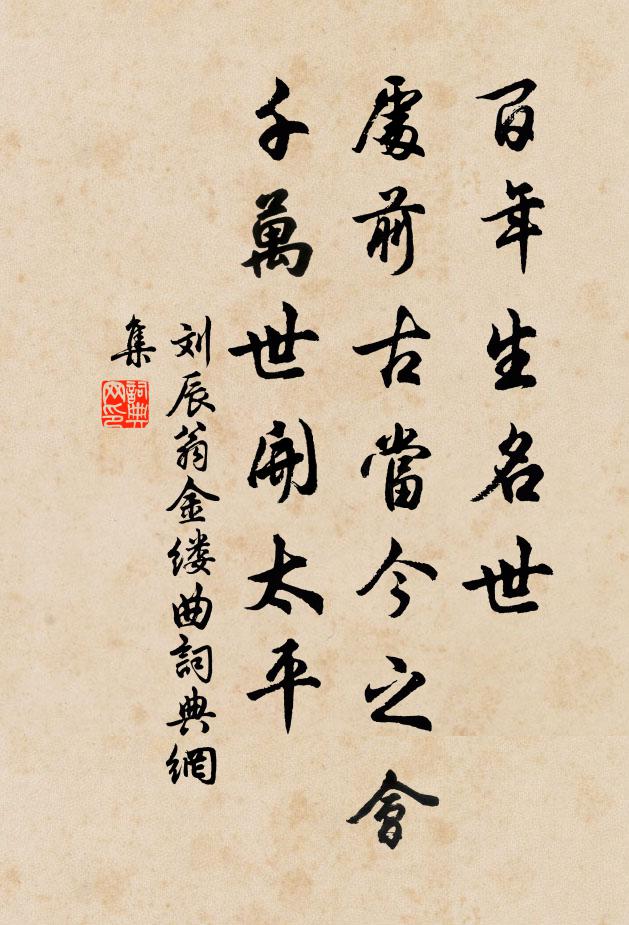 百年生名世
處前古當今之會
千萬世開太平
刘辰翁金缕曲詞典網
集
詞典
网印